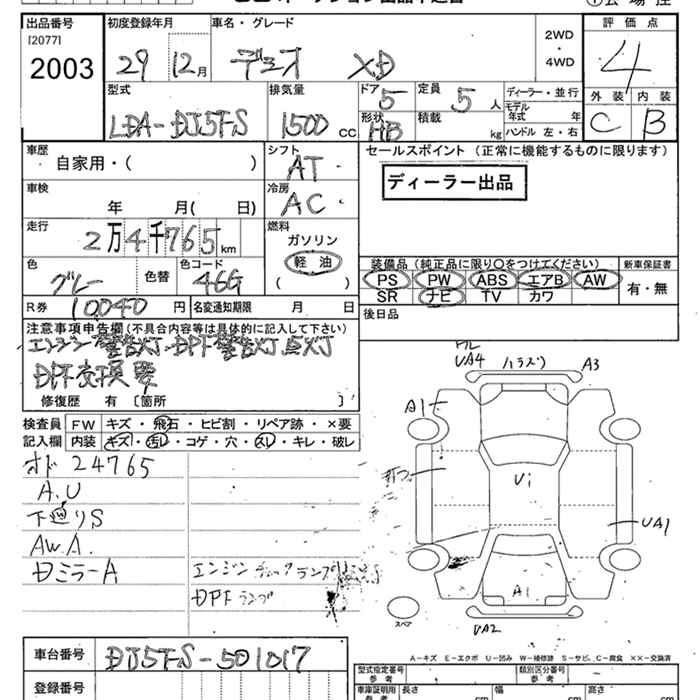 出品番号
[2077]
2003
初度登録年月
29 12月
車名・グレード
デミオ XD
2WD
・
4WD
評価点
4
型式
LDA-DJ5FS
排気量
1500 CC
ドア
5
定員
5 人
ディーラー・並行
形状
HB
積載
kg
モデル年式 年
ハンドル 左・右
外装 内装
C B
車歴
自家用・( )
シフト
AT
セールスポイント (正常に機能するものに限ります)
ディーラー出品
車検
年 月( 日)
冷房
AC
走行
2万4千765 km
燃料
ガソリン
軽油
( )
色
グレー
色替
色コード
46G
装備品 (純正品に限り○をつけてください)
新車保証書
PS PW ABS エアB AW
有・無
SR ナビ TV カワ
R券
10040 円
名変通知期限 月 日
後日品
注意事項申告欄 (不具合内容等は具体的に記入して下さい)
エンジン警告灯、DPF警告灯点灯
DPF交換要
修復歴 有 〔箇所 〕
検査員
記入欄
FW キズ・飛石・ヒビ割・リペア跡・×要
内装 キズ・汚レ・コゲ・穴・スレ・キレ・破レ
オド 24765
A.U
下廻りS
AW A.
Dミラー A
エンジンチェックランプ
DPFランプ
UA4
A3
A1
Vi
UA1
A1
UA2
スペア
A-キズ E-エクボ U-凹み W-補修跡 S-サビ C-腐食 XX-交換済
車台番号
DJ5FS-501017
型式指定番号
参考
類別区分番号
登録番号
車庫証明用
参考
長さ cm
幅 cm
高さ cm